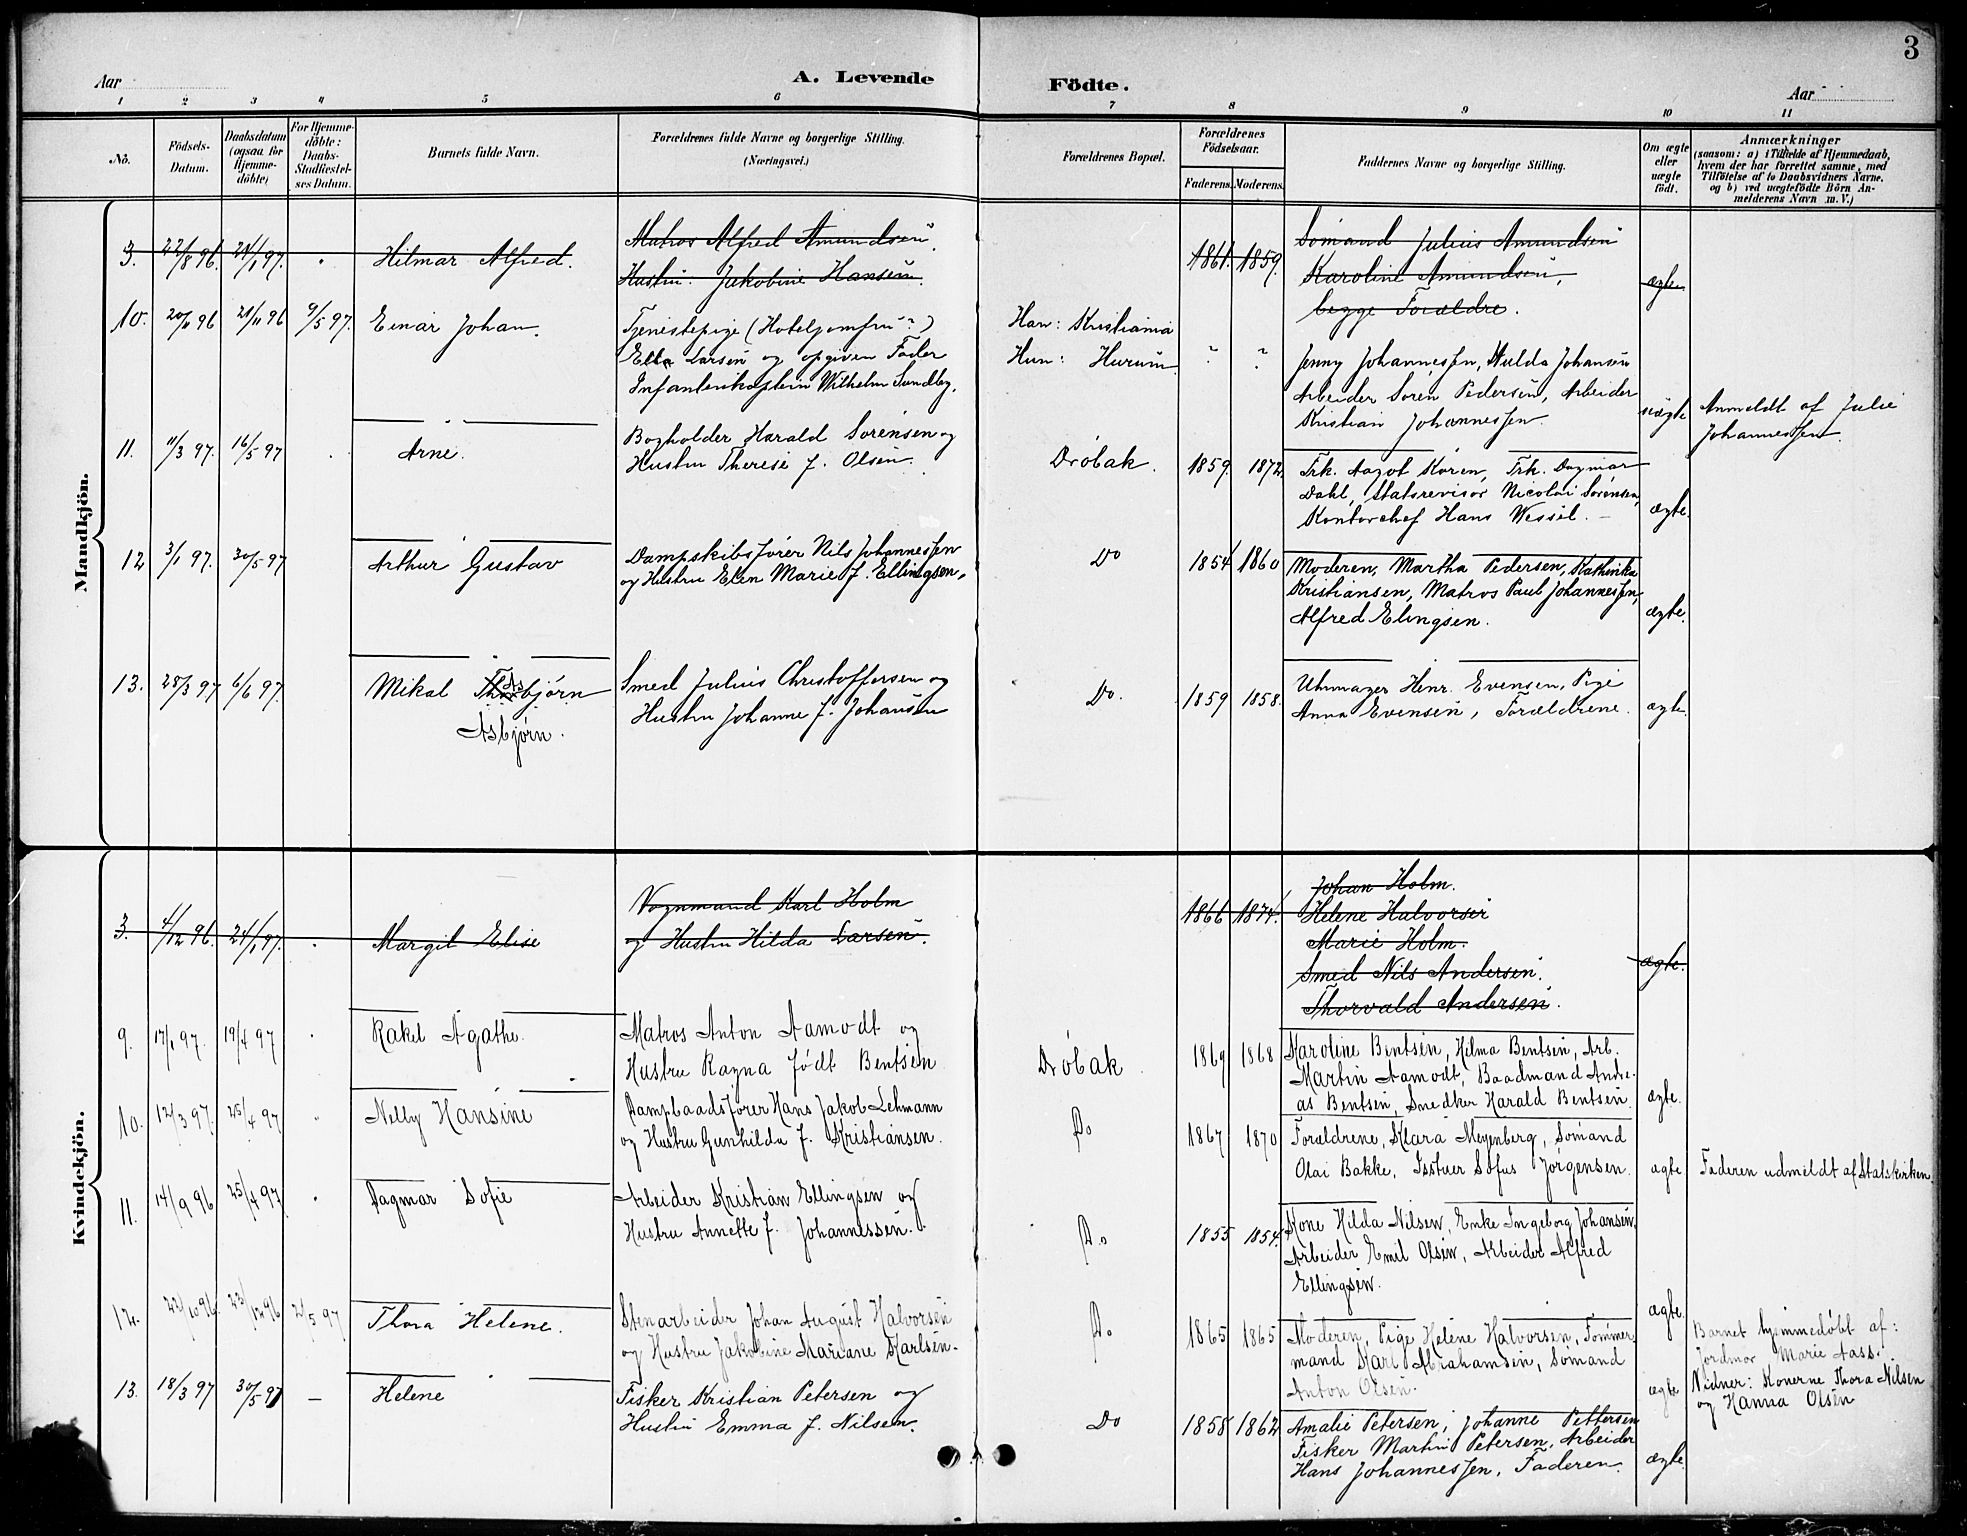 3
Aar
A. Levende Födte.
Aar
1 2 3 4 5 6 7 8 9 10 11
No.
Födsels-Datum.
Daabsdatum (ogsaa for Hjemme-döbte)
For Hjemme-döbte: Daabs-Stadfæstel-ses Datum.
Barnets fulde Navn.
Forældrenes fulde Navne og borgerlige Stilling. (Næringsvei.)
Forældrenes Bopæl.
Forældrenes Födselsaar.
Faderens. Moderens.
Faddernes Navne og borgerlige Stilling.
Om ægte eller uægte födt.
Anmærkninger
(saasom: a) i Tilfælde af Hjemmedaab,
hvem der har forrettet samme, med
Tilföielse af to Daabsvidners Navne.
og b) ved uægtefödte Börn An-
melderens Navn m. V.)
Mandkjön.
3. 22/8 96. 24/1 97. Hilmar Alfred.
Matros Alfred Amundsen
Hustru: Jakobine Hansen.
1861. 1859.
Sömand Julius Amundsen
Karoline Amundsen,
begge Forældre.
ægte
10. 20/11 96 21/11 96 9/5 97. Einar Johan.
Tjenestepige (Hoteljomfru?)
Ella Larsen og opgiven Fader
Infanterikaptein Wilhelm Sundby.
Han: Kristiania
Hun: Hurum
? ?
Jenny Johannessen, Hulda Johansen
Arbeider Soren Pedersen, Arbeider
Kristian Johannessen.
uægte
Anmeldt af Julie
Johannessen.
11. 11/3 97. 16/5 97 Arne.
Bogholder Harald Sörensen og
Hustru Therese f. Olsen.
Dröbak. 1859. 1872.
Frk. Aagot Koren, Frk. Dagmar
Dahl, Statsrevisor Nicolai Sörensen,
Kontorchef Hans Wessel.
ægte.
12 3/1 97. 30/5 97 Arthur Gustav
Dampskibsförer Nils Johannessen
og Hustru Elen Marie f. Ellingsen.
Do 1854 1860
Moderen, Martha Pedersen, Kathinka
Kristiansen, Matros Paul Johannessen,
Alfred Elingsen.
ægte.
13. 28/3 97 6/6 97. Mikal Thorbjörn
As
Asbjørn.
Smed Julius Christoffersen og
Hustru Johanne f. Johansen
Do. 1859 1858.
Uhrmager Henr. Evensen, Pige
Anna Evensen, Forældrene.
ægte.
Kvindekjön.
3. 4/12 96. 24/1 97. Margit Elise
Vognmand Karl Holm
og Hustru Hilda Larsen.
1866 1874.
Johan Holm.
Helene Halvorsen
Marie Holm.
Smed Nils Andersen.
Thorvald Andersen.
ægte.
9. 17/1 97. 19/4 97 Rakel Agathe.
Matros Anton Aamodt og
Hustru Ragna født Bentsen
Dröbak 1869 1868
Karoline Bentsen, Hilma Bentsen, Arb.
Martin Aamodt, Baadmand Andre-
as Bentsen, Snedker Harald Bentsen.
ægte.
10. 12/3 97. 25/4 97 Nelly Hansine
Dampbaadsförer Hans Jakob Lehmann
og Hustru Gunhilda f. Kristiansen.
Do 1867 1870
Forældrene, Klara Meyenberg, Sömand
Olai Bakke, Sofus Jørgensen.
ægte
Faderen udmeldt af Statskirken.
11. 14/9 96 25/4 97 Dagmar Sofie
Arbeider Kristian Ellingsen og
Hustru Annette f. Johannessen.
Do 1855 1854.
Kone Hilda Nilsen, Enke Ingeborg Johansen,
Arbeider Emil Olsen, Arbeider Alfred
Ellingsen.
ægte.
12. 22/10 96. 23/12 96 2/5 97 Thora Helene.
Stenarbeider Johan August Halvorsen
og Hustru Jakobine Mariane Karlsen.
Do 1865 1865
Moderen, Pige Helene Halvorsen, Tömmer-
mand Karl Abrahamsen, Sömand
Anton Olsen.
ægte
Barnet hjemmedöbt af:
Jordmor Marie Aass.
Vidner: Konerne Thora Nilsen
og Hanna Olsen
13. 18/3 97 30/5 97 — Helene
Fisker Kristian Petersen og
Hustru Emma f. Nilsen.
Do 1858 1862
Amalie Petersen, Johanne Pettersen
Fisker Martin Petersen, Arbeider
Hans Johannessen, Faderen.
ægte.